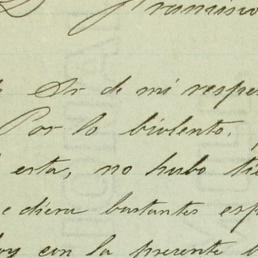 Francisco
Sr de mi respe
Por lo biolento,
esta, no hubo tie
e diera bastantes esp
oy con la presente